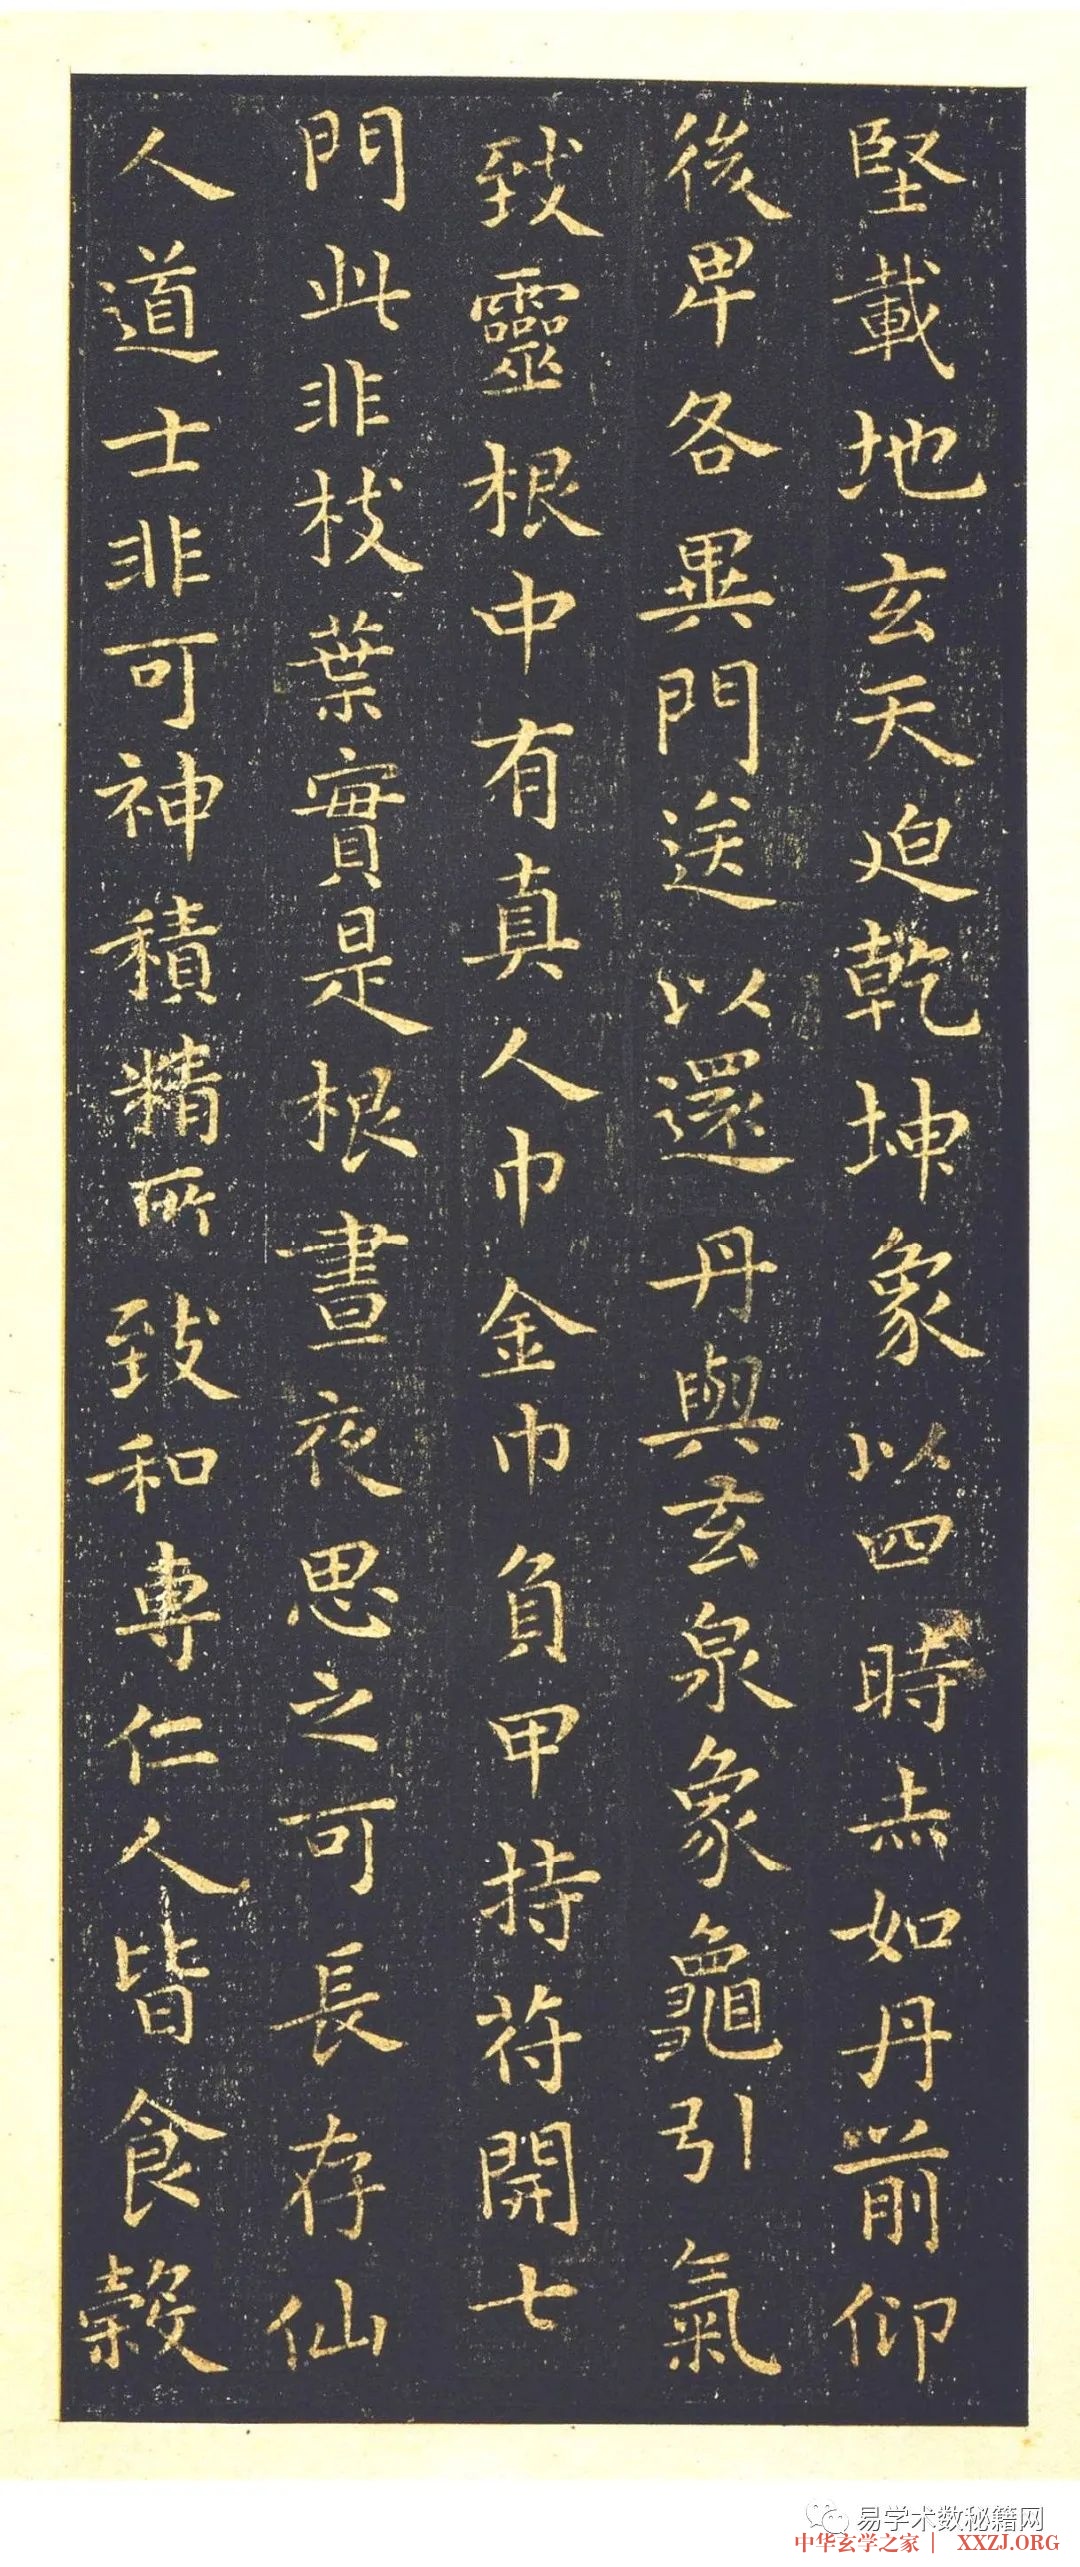 堅載地玄天迫乾坤象以四時赤如丹前仰
後卑各異門送以還丹與玄泉象龜引氣
致靈根中有真人巾金巾負甲持苻開七
門此非枝葉實是根晝夜思之可長存仙
人道士非可神積精所致和專仁人皆食穀
易学术数秘籍网
中华玄学之家| XXZJ.ORG